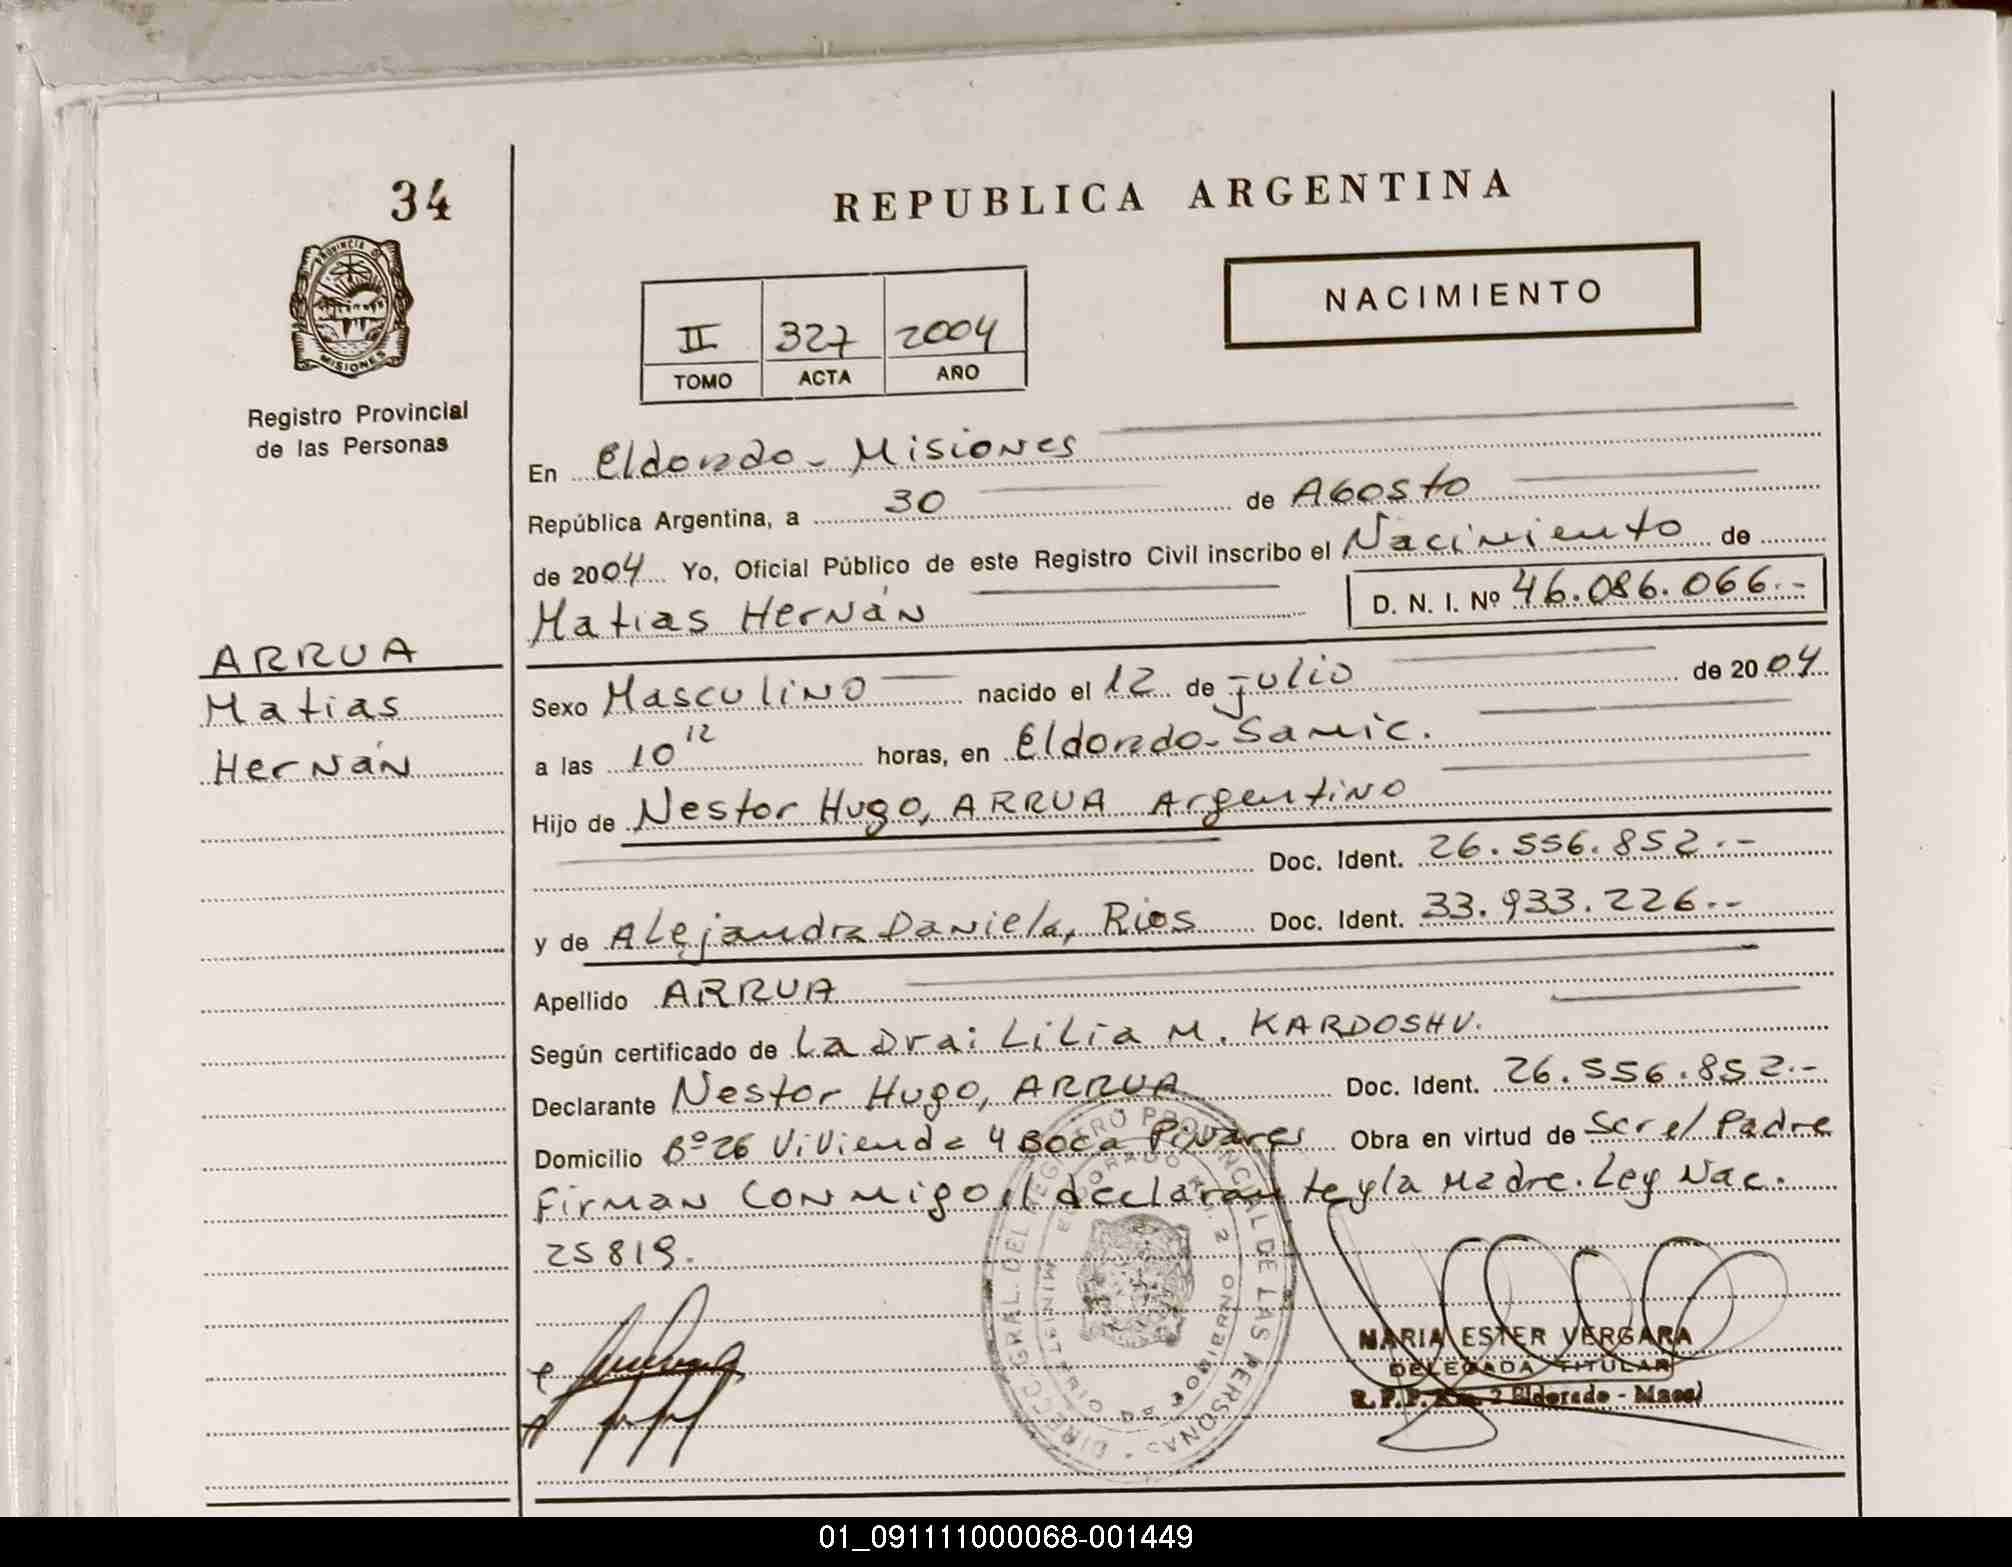 34
REPUBLICA ARGENTINA
PROVINCIA DE
MISIONES
Registro Provincial
de las Personas
NACIMIENTO
II 327 2004
TOMO ACTA AÑO
En Eldorado - Misiones
República Argentina, a 30 de Agosto
de 2004 Yo, Oficial Público de este Registro Civil inscribo el Nacimiento de
Matias Hernán D. N. I. Nº 46.086.066.-
ARRUA
Matias
Hernán
Sexo Masculino nacido el 12 de julio de 2004
a las 10 12 horas, en Eldorado - Samic.
Hijo de Nestor Hugo, ARRUA Argentino
Doc. Ident. 26.556.852.-
y de Alejandra Daniela, Rios Doc. Ident. 33.933.226.-
Apellido ARRUA
Según certificado de La Dra: Lilia M.
Declarante Nestor Hugo, ARRUA Doc. Ident. 26.556.852.-
Domicilio Bº 26 Vivienda 4 Boca Pinares Obra en virtud de Ser el Padre
Firman conmigo el declarante y la Madre. Ley Nac.
25819.
DIREC. GRAL. DEL REGISTRO PROVINCIAL DE LAS PERSONAS
MINISTERIO DE GOBIERNO
ELDORADO KM. 2
MARIA ESTER VERGARA
DELEGADA TITULAR
R.P.P. Km. 2 Eldorado - Mnes
01_091111000068-001449